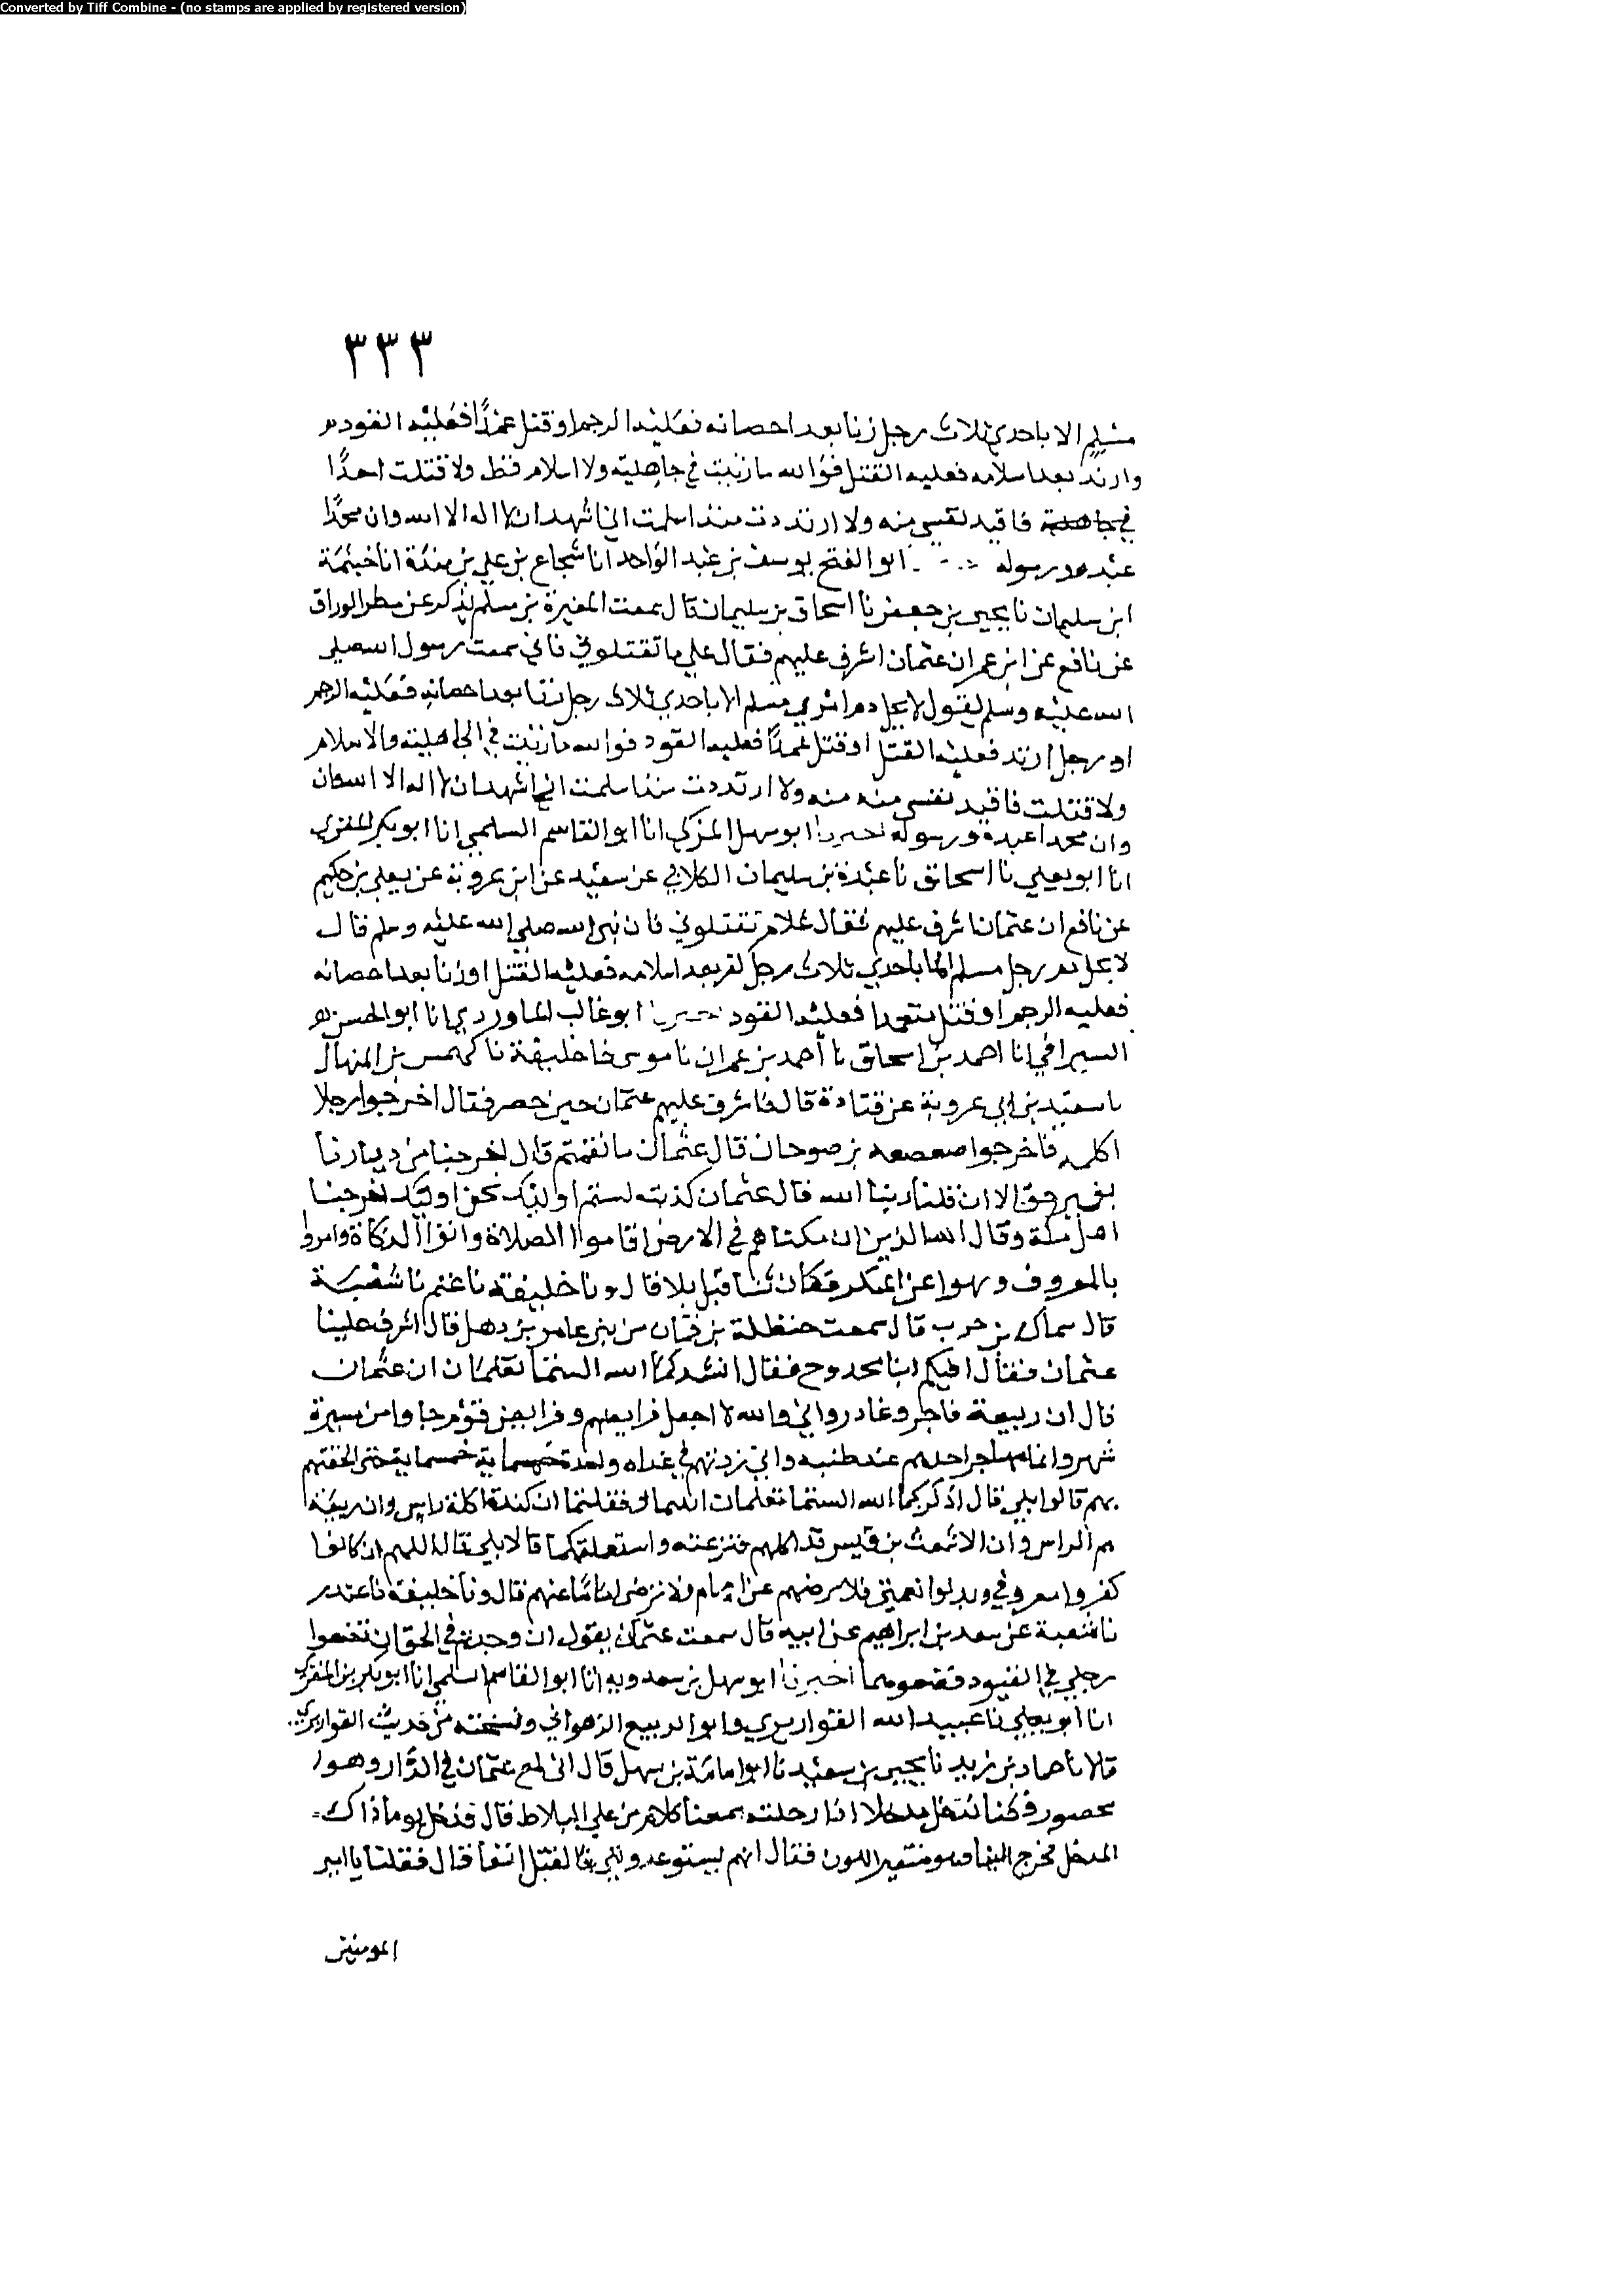 Converted by Tiff Combine - (no stamps are applied by registered version)
٣٣٣
مسلم الا باحدي ثلاث رجل زنا بعد احصانه فعليه الرجم او قتل عمدًا فعليه القود
وارتد بعد اسلامه فعليه القتل فوالله ما زنيت في جاهلية ولا اسلام قط ولا قتلت احدًا
فاقيد نفسي منه ولا ارتددت منذ اسلمت اني اشهد ان لا اله الا الله وان محمدًا
عبده ورسوله ابو الفتح يوسف بن عبد الواحد انا شجاع بن علي بن مندة انا خيثمة
ابن سليمان نا يحيى بن جعفر نا اسحاق بن سليمان قال سمعت المغيرة بن مسلم يذكر عن مطر الوراق
عن نافع عن ابن عمر ان عثمان اشرف عليهم فقال علي ما تقتلوني فاني سمعت رسول الله صلى
الله عليه وسلم يقول لا يحل دم امرئ مسلم الا باحدي ثلاث رجل زنا بعد احصانه فعليه الرجم
او رجل ارتد فعليه القتل او قتل عمدًا فعليه القود فوالله ما زنيت في الجاهلية والاسلام
ولا قتلت فاقيد نفسي منه ولا ارتددت منذ اسلمت اني اشهد ان لا اله الا الله
وان محمدا عبده ورسوله اخبرنا ابو سهل المزكي انا ابو القاسم السلمي انا ابو بكر المقري
انا ابو يعلي نا اسحاق نا عبدة بن سليمان الكلابي عن سعيد عن ابن عروبة عن يعلي بن حكيم
عن نافع ان عثمان اشرف عليهم فقال علام تقتلوني فان نبي الله صلي الله عليه وسلم قال
لا يحل دم رجل مسلم الا باحدي ثلاث رجل كفر بعد اسلامه فعليه القتل او زنا بعد احصانه
فعليه الرجم او قتل متعمدا فعليه القود اخبرنا ابو غالب الماوردي انا ابو الحسن
السيرافي انا احمد بن اسحاق نا أحمد بن عمران نا موسى نا خليفة نا كهمس بن المنهال
نا سعيد بن ابي عروبة عن قتادة قال فاشرف عليهم عثمان حين حصر فقال اخرجوا رجلا
اكلمه فاخرجوا صعصعه بن صوحان قال عثمان ما نقمتم قال اخرجنا من ديارنا
بغير حق الا ان قلنا ربنا الله قال عثمان كذبت لستم اوليك نحن اوليك اخرجنا
اهل مكة وقال الله الذين ان مكناهم في الارض اقاموا الصلاة واتوا الزكاة وامروا
بالمعروف ونهوا عن المنكر فكان ثنا قبل بلا قال ونا خليفة نا غندر نا شعبة
قال سماك بن حرب قال سمعت حنظلة بن قنان من بني عامر بن ذهل قال اشرف علينا
عثمان فقال افيكم ابنا محدوج فقال انشدكما الله الستما تعلمان ان عثمان
قال ان ربيعة فاجر وغادر واني والله لا اجعل فرايضهم وفرايض قوم جاوا من مسيرة
شهر وانما مهاجر احدهم عند طنبه واني زدتهم في غداه واحدة خمسماية خمسماية حتى الحقتهم
بهم قالوا بلي قال اذكركما الله الستما تعلمان انكما فقلتما ان كندة اكلة راس وان ربيعة
هم الراس وان الاشعث بن قيس قد اكلهم فنزعته واستعملتكما قالا بلي قال اللهم ان كانوا
كفروا معروفي وبدلوا نعمتي فلا ترضهم عن امام ولا ترض امامًا عنهم قال ونا خليفة نا غندر
نا شعبة عن سعد بن ابراهيم عن ابيه قال سمعت عثمان يقول ان وجدتم في الحق ان تضعوا
رجلي في القيود فضعوهما اخبرنا ابو سهل بن سعدويه انا ابو القاسم السلمي انا ابو بكر بن المقري
انا ابو يعلي نا عبيد الله القواريري وابو الربيع الزهراني ونسخته من حديث القواريري
قالا نا حماد بن زيد نا يحيى بن سعيد نا ابو امامة بن سهل قال اني لمع عثمان في الدار وهو
محصور وكنا ندخل مدخلا اذا دخلنا سمعنا كلام من علي البلاط قال فدخل يوما ذاك
المدخل فخرج الينا وهو متغير اللون فقال انهم ليتوعدونني بالقتل انفا قال فقلنا يا امير
المومنين